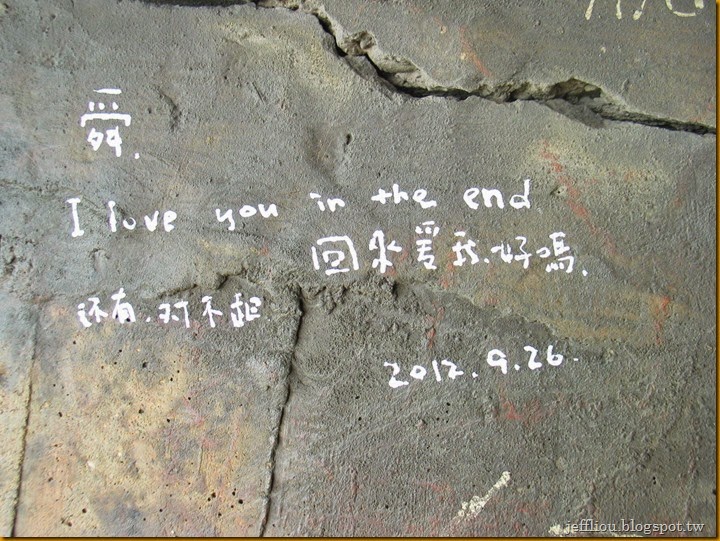 舜.
I love you in the end
回來爱我.好嗎.
还有.对不起
2012.9.26.
jeffliou.blogspot.tw